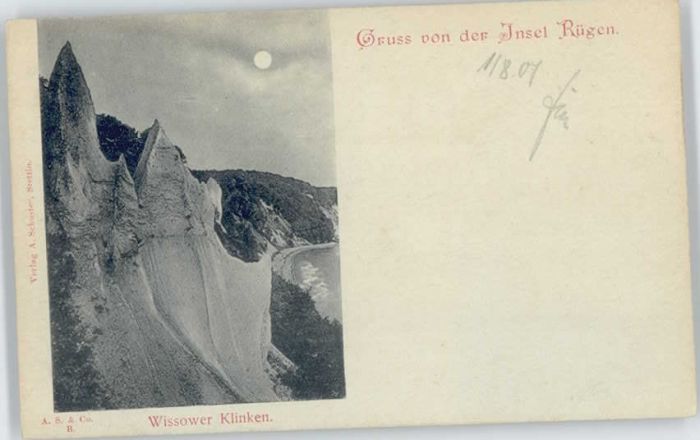 Gruss von der Insel Rügen.
1/8.07
Verlag A. Schuster, Stettin.
A. S. & Co.
B.
Wissower Klinken.